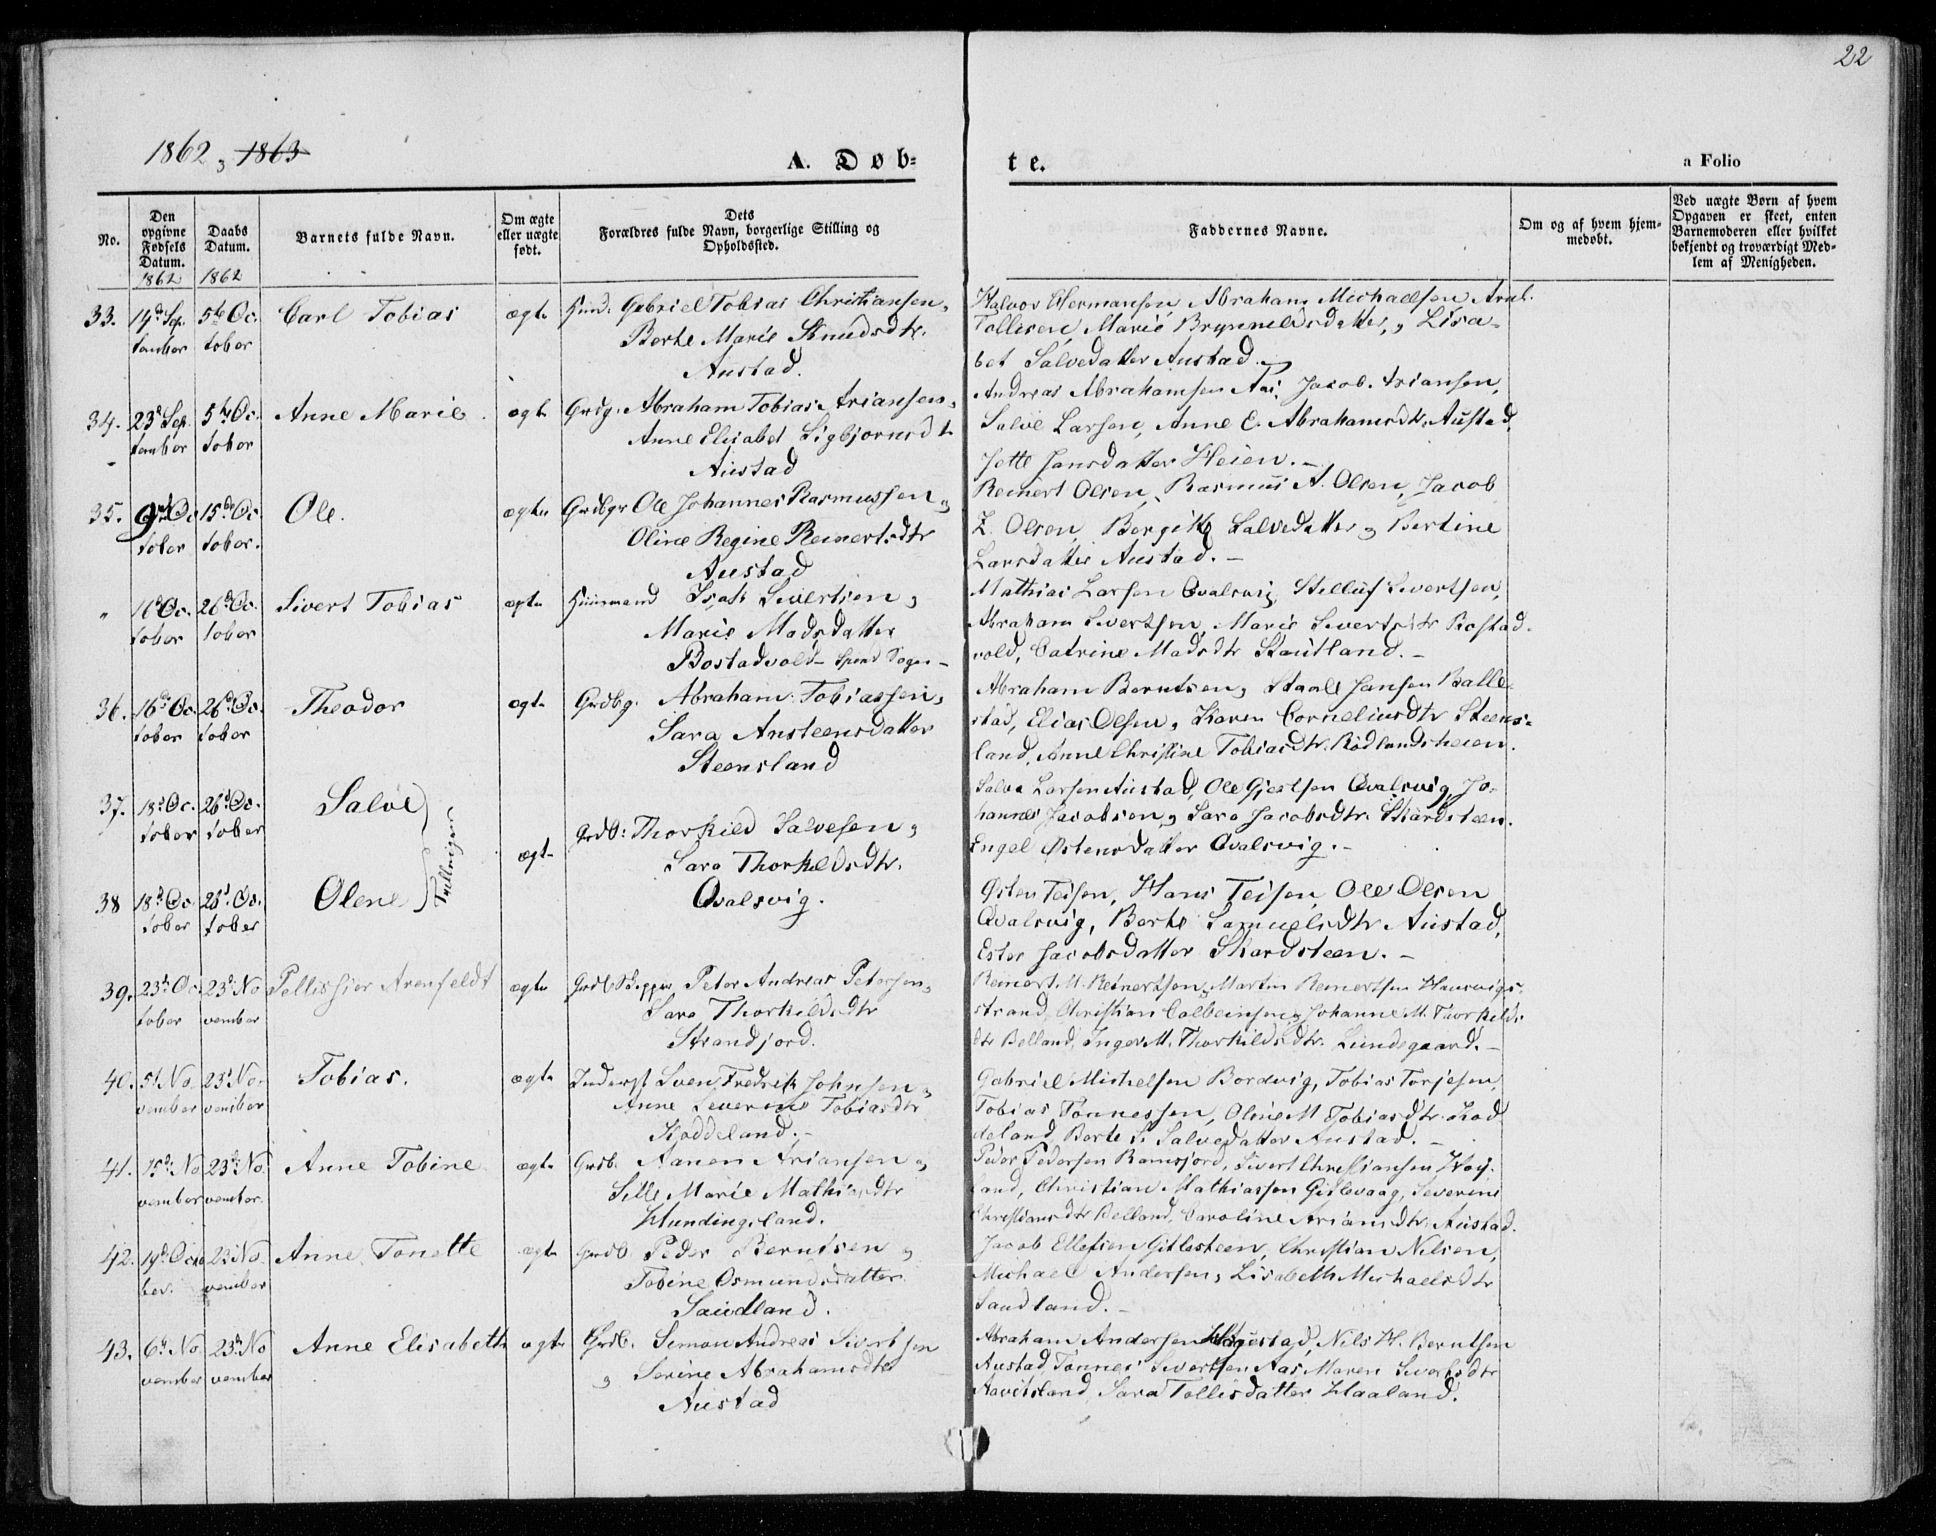 22
1862, 1863
A. Døb-
te.
a Folio
No.
Den opgivne Fødsels Datum.
1862
Daabs Datum.
1862
Barnets fulde Navn.
Om ægte eller uægte født.
Dets Forældres fulde Navn, borgerlige Stilling og Opholdssted.
Faddernes Navne.
Om og af hvem hjemmedøbt.
Ved uægte Børn af hvem Opgaven er skeet, enten Barnemoderen eller hvilket bekjendt og troværdigt Medlem af Menigheden.
33. 14d Sep. 5te Oc. Carl Tobias ægte Huusm. Gabriel Tobias Christiansen,
tember tober Berte Marie Knudsdtr.
Austad.
Halvor Hermansen, Abraham Michaelsen
Tollisen, Marie Bryннeldsdatter, Lisa-
bet Salvedatter Austad.
34. 23d Sep. 5te Oc. Anne Marie ægte Grdbg. Abraham Tobias Ariansen,
tember tober Anne Elisabet Sigbjørnsdtr
Austad
Andreas Abrahamsen Aas, Jacob Ariansen,
Salve Larsen, Anne E. Abrahamsdtr. Austad,
Jette Jansdatter Heien.
35. 9de Oc 15de Oc. Ole. ægte Grdbgr Ole Johannes Rasmussen,
tober tober. Oline Regine Reinertsdtr
Austad
Reinert Olsen, Rasmus A. Olsen, Jacob
Z. Olsen, Bergitte Salvedatter, Bertine
Larsdatter Austad.
" 10d Oc. 26d Oc. Sivert Tobias ægte Huusmand Isak Sivertsen,
tober tober Marie Madsdatter
Bostadvold Spind Sogn
Mathias Larsen Qvalsvig, Stelluf Sivertsen,
Abraham Sivertsen, Marie Sivertsdtr Bostad-
vold, Catrine Madsdtr Stautland.
36. 16de Oc. 26d Oc. Theodor ægte Grdbg. Abraham Tobiassen,
tober tober Sara Ansteensdatter
Steensland
Abraham Berntsen, Staale Jansen Balle-
stad, Elias Olsen, Karen Corneliusdtr Steens-
land, Anne Christine Tobiasdtr. Rødlandsheien.
37. 18d Oc. 26d Oc. Salve
tober tober
Tvillinger
ægte Grdb: Thorkild Salvesen,
Sara Thorkildsdtr.
Qvalsvig.
Salve Larsen Austad, Ole Gjertsen Qvalsvig, Jo-
hannes Jacobsen, Sara Jacobsdtr. Skardsteen.
Engel Østensdatter Qvalsvig.
38 18d Oc. 26d Oc. Olene
tober tober
Østen Teisen, Hans Teisen, Ole Olsen
Qvalsvig, Berte Samuelsdtr Austad,
Ester Jacobsdatter Skardsteen.
39. 23d Oc. 23d No Pellissier Arenfeldt ægte Grdb. Skipper Peter Andreas Petersen,
tober vember Sara Thorkildsdtr
Strandfjord.
Reinert M. Reinertsen, Martin Reinertsen Haarvigs-
strand, Christian Colbeinsen, Johanne M. Thorkilds-
dtr Belland, Inger M. Thorkildsdtr. Lundegaard.
40. 5d No. 23d No. Tobias. ægte Inderst Sven Fredrik Johnsen,
vember vember Anne Severine Tobiasdtr
Kjoddeland.
Gabriel Michelsen Bordvig, Tobias Torjesen,
Tobias Tønnessen, Oline M. Tobiasdtr. Kod-
deland, Berte S. Salvedatter Austad.
41. 15d No 23d No. Anne Tobine ægte Grdb. Aanen Ariansen,
vember vember. Sille Marie Mathiasdtr
Hundingsland.
Peder Pedersen Ramsfjord, Sivert Christiansen Høy-
land, Christian Mathiassen Gislevaag, Severine
Christiansdtr Belland, Caroline Ariansdtr. Austad.
42. 19d Octo 23d No Anne Tonette ægte Grdb. Peder Berntsen,
ber. vember Tobine Osmundsdatter
Saudland.
Jacob Ellefsen Gitlesteen, Christian Nilsen,
Michael Andersen, Lisabeth Michaelsdtr
Saudland.
43. 6d No. 23d No Anne Elisabeth ægte Grdb. Simon Andreas Sivertsen
vember vember , Serine Abrahamsdtr
Austad
Abraham Andersen Hagestad, Nils H. Berntsen
Austad, Tønnes Sivertsen Aas, Maren Sivertsdtr
Aavitsland, Sara Tollisdatter Haaland.